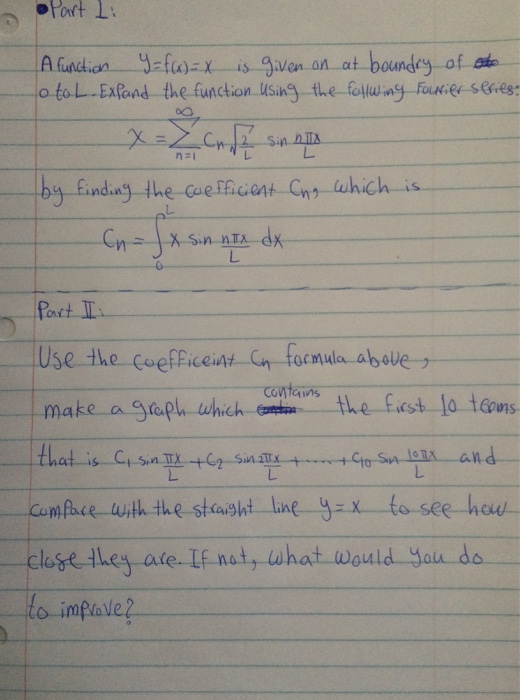 • Part I:
A function y=f(x)=x is given on at boundry of
0 to L. Expand the function using the follwing Fourier series:
x = ∑_{n=1}^{∞} Cn √(2/L) sin nπx/L
by finding the coefficient Cn, which is
Cn = ∫_0^L x sin nπx/L dx
Part II:
Use the coefficeint Cn formula above,
make a graph which contains the first 10 teams
that is C1 sin πx/L + C2 sin 2πx/L + ..... + C10 sin 10πx/L and
compare with the straight line y=x to see how
close they are. If not, what would you do
to improve?